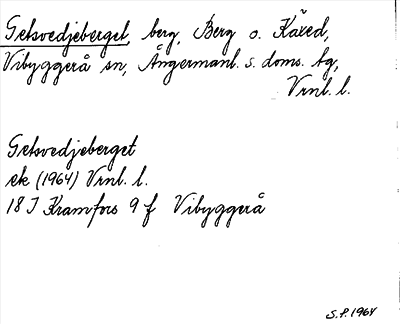 Getsvedjeberget, berg, Berg o. Käxed,
Vibyggerå sn, Ångermanl. s. doms. tg,
Vrnl. l.
Getsvedjeberget
ek (1964) Vrnl. l.
18 J Kramfors 9 f Vibyggerå
S.P. 1964